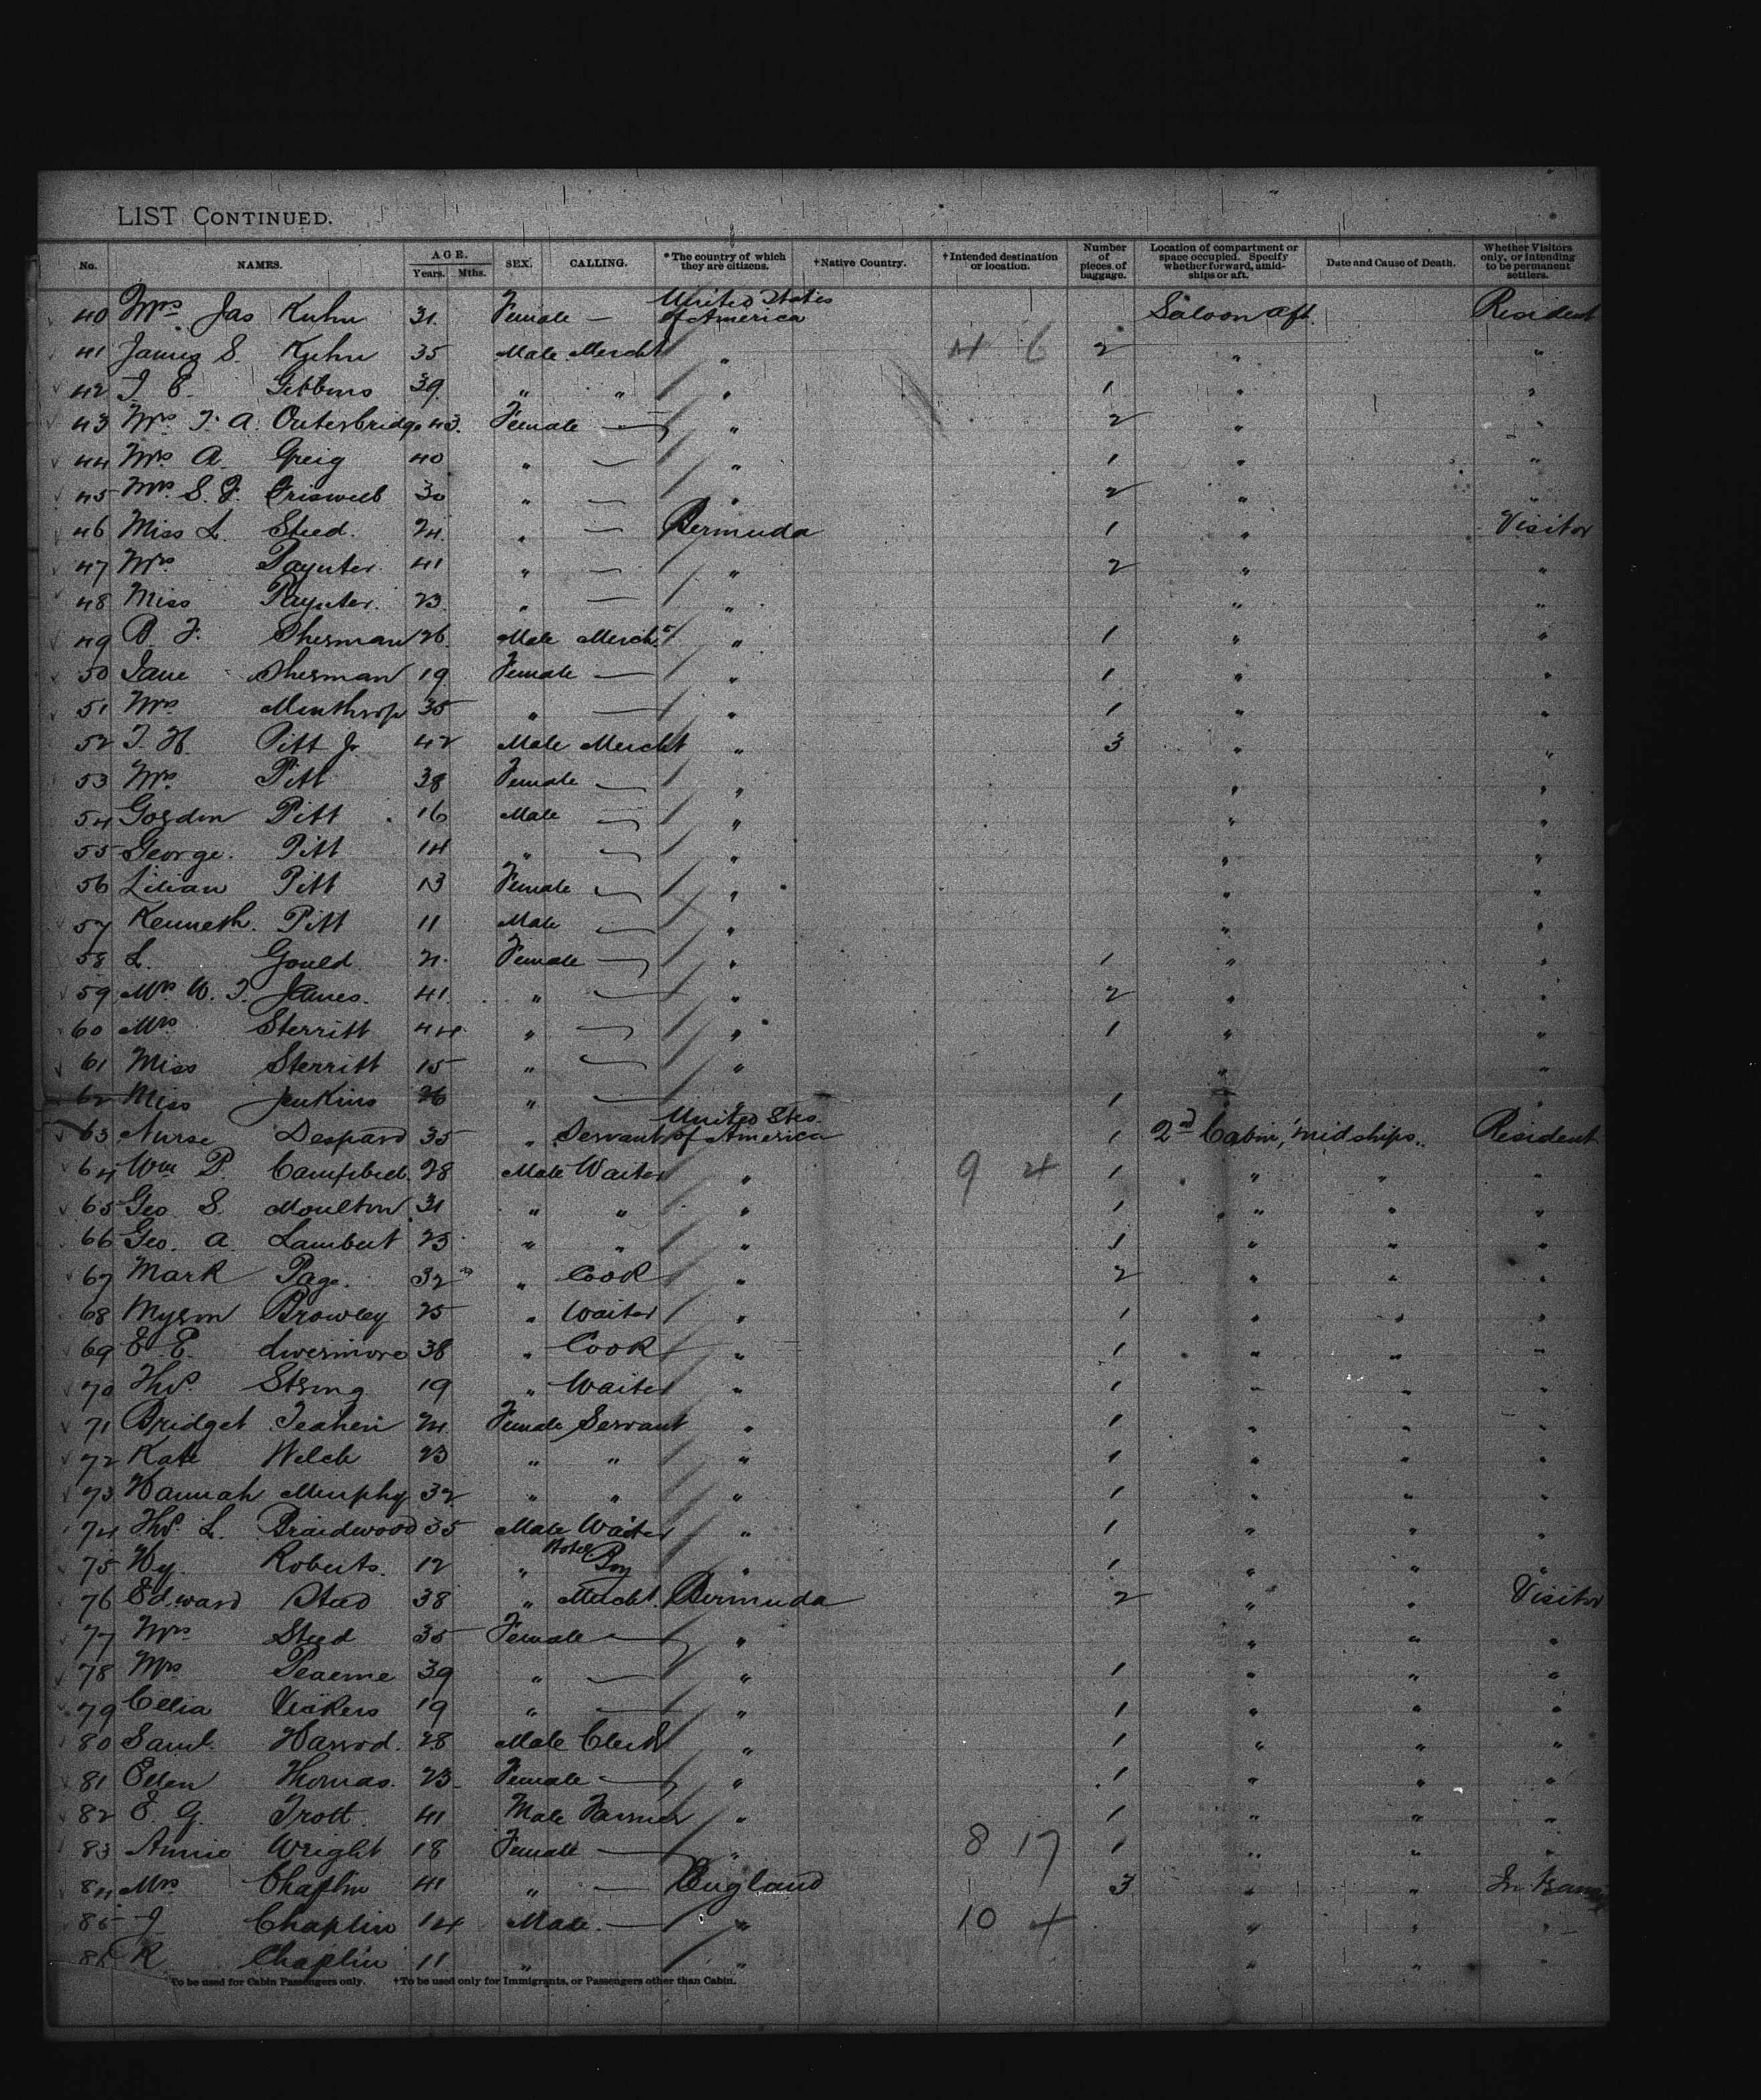 LIST CONTINUED.
No. NAMES. AGE. Years. Mths. SEX. CALLING. *The country of which they are citizens. †Native Country. †Intended destination or location. Number of pieces of baggage. Location of compartment or space occupied. Specify whether forward, amidships or aft. Date and Cause of Death. Whether Visitors only, or intending to be permanent settlers.
40 Mrs Jas Kuhn 31 Female — United States of America Saloon aft. Resident
41 James S. Kuhn 35 Male Mercht " 4 6 2 " "
42 J. E. Gibbons 39 " " " 1 " "
43 Mrs. J. A. Outerbridge 43. Female — " 2 " "
44 Mrs. A. Greig 40 " — " 1 " "
45 Mrs. S. J. 30 " — " 2 " "
46 Miss L. Steed. 24 " — Bermuda 1 " Visitor
47 Mrs Paynter 41 " — " 2 " "
48 Miss Paynter. 23 " — " " "
49 B. J. Sherman 26 Male Mercht " 1 " "
50 Jane Sherman 19 Female — " 1 " "
51 Mrs 35 " — " 1 " "
52 T. H. Pitt Jr 42 Male Mercht " 3 " "
53 Mrs. Pitt 38 Female — " " "
54 Gordon Pitt 16 Male — " " "
55 George. Pitt 14 " — " " "
56 Lilian Pitt 13 Female — " " "
57 Kenneth. Pitt 11 Male — " " "
58 L. Gould 21 Female — " 1 " "
59 Mrs W. J. James. 41 " — " 2 " "
60 Mrs Sterritt 44 " — " 1 " "
61 Miss Sterritt 15 " — " " "
62 Miss Jenkins 26 " — " 1 " "
63 Nurse Despard 35 " Servant United Sts. of America 1 2nd Cabin, midships. Resident
64 Wm P. Campbell. 28 Male Waiter " 9 4 1 " " "
65 Geo. S. Moulton 31 " " " 1 " " "
66 Geo. A. Lambert 23 " " " 1 " " "
67 Mark Page. 32 " Cook " 2 " " "
68 Myron Browley 25 " Waiter " 1 " " "
69 E. E. Livermore 38 " Cook " 1 " " "
70 Thos. Strong 19 " Waiter " 1 " " "
71 Bridget 24 Female Servant " 1 " " "
72 Kate Welch 23 " " " 1 " " "
73 Hannah Murphy 32 " " " 1 " " "
74 Thos. L. Braidwood 35 Male Waiter " 1 " " "
75 Hy. Roberts. 12 " Hotel Boy " 1 " " "
76 Edward Steed 38 " Mercht. Bermuda 2 " " Visitor
77 Mrs Steed 35 Female — " " " "
78 Mrs 39 " — " 1 " " "
79 Celia Vickers 19 " — " 1 " " "
80 Saml. Harrod. 28 Male Clerk " 1 " " "
81 Ellen Thomas. 23 Female — " 1 " " "
82 E. G. Trott. 41 Male Farmer " 1 " " "
83 Annie Wright 18 Female — " 8 17 1 " " "
84 Mrs Chaplin 41 " — England 3 " "
85 J Chaplin 14 Male — " 10 4 " " "
86 R Chaplin 11 " " " " "
To be used for Cabin Passengers only. †To be used only for Immigrants, or Passengers other than Cabin.